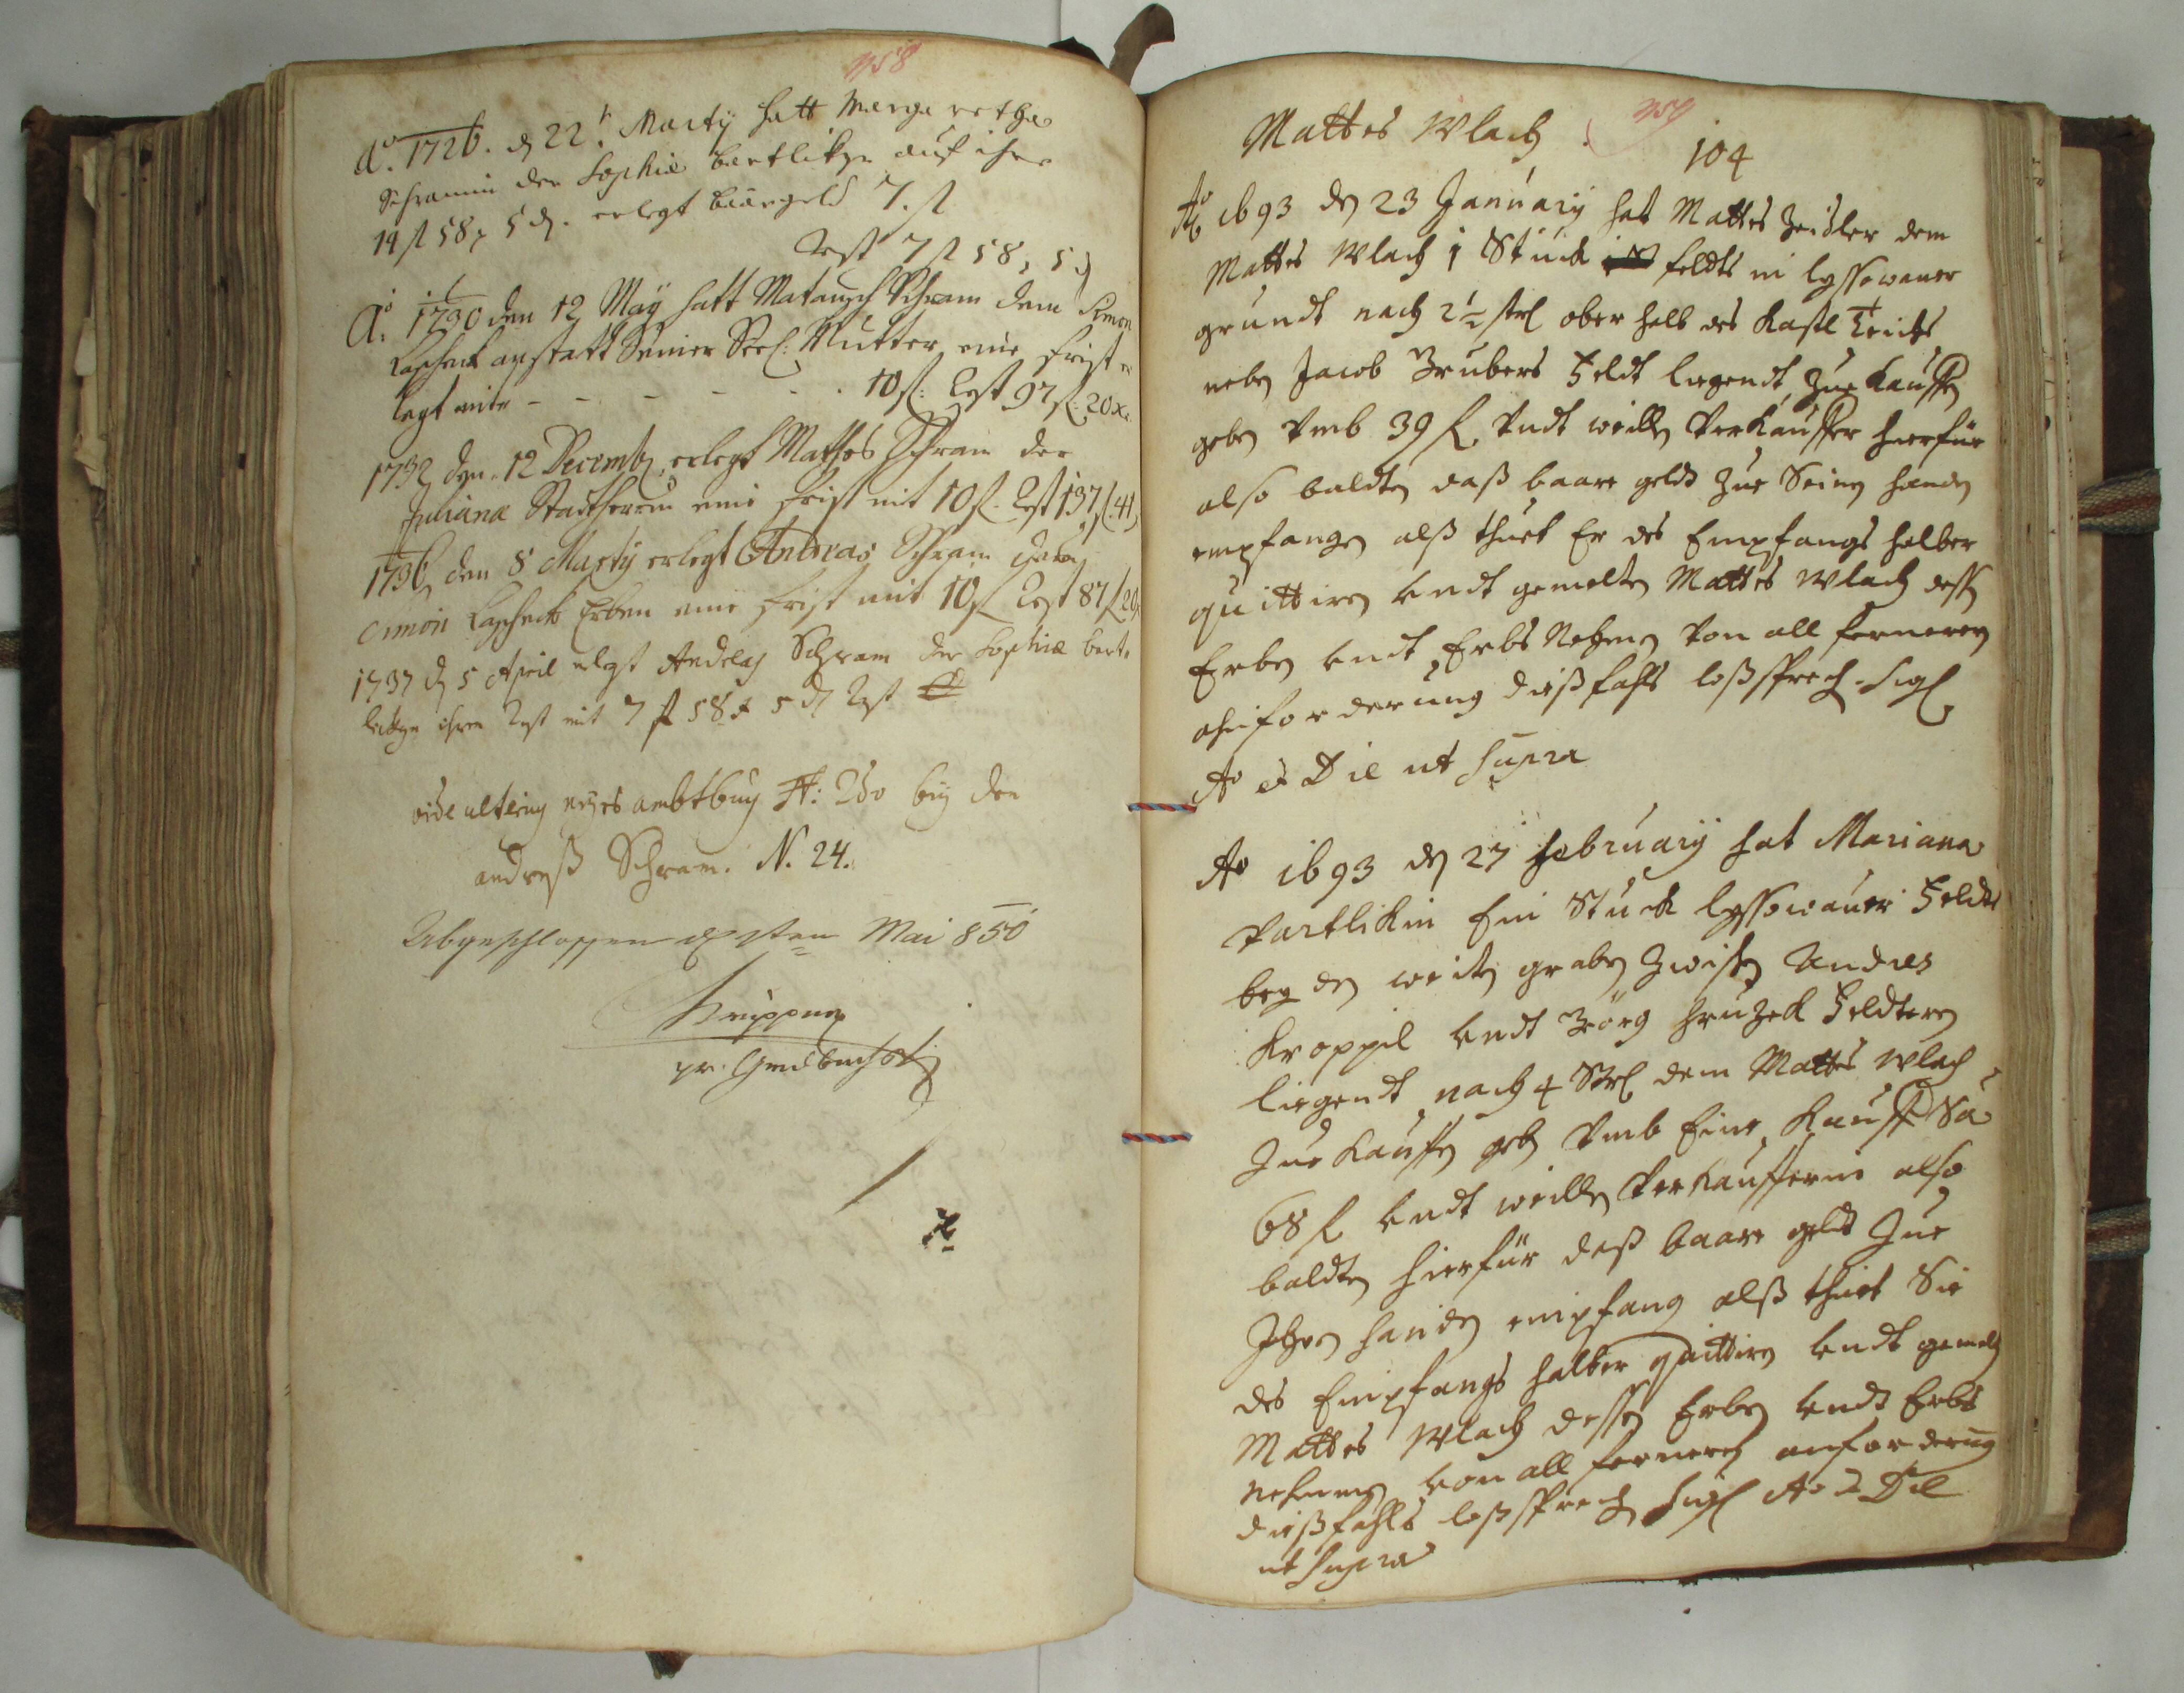 458
Ao. 1726. den 22t. Marty hatt Margaretha
Schramin der Sophie bartlikge auf ihre
14 fl 58 x 5 d. erlegt baargeld 7. fl
Rest 7 fl 58 x 5 d
Ao. 1730 den 12 May hatt Matausch Schram dem Simon
anstatt Seiner Seel: Mutter eine frist er
legt mit - - - - - - 10 fl: Rest 97 fl: 20 x.
1732 den 12 Decemb: erlegt Mathes Schram der
Juliana eine frist mit 10 fl. Rest 137 fl 41
1736 den 8 Marty erlegt Andreas Schram
Simon Erben eine frist mit 10 fl Rest 87 fl 20
1737 d 5 April erlegt Andreas Schram der Sophie bart-
ihren Rest mit 7 fl 58 x 5 d Rest
vide neyes ambtbuch bey den
andreß Schram. N. 24.
Abgeschlossen Mai 850
Mattes Wlach
459
104
Ao 1693 den 23 January hat Mattes Zeisler dem
Mattes Wlach 1 Stuck feldts in lyssowaner
grundt nach 2½ strl ober halb des Teichts
neben Jacob Grubers Feldt liegendt, zue kauffen
geben vmb 39 fl. vndt weillen Verkauffer hierfür
also baldten daß baare geldt zue Seinen handen
empfangen alß thuet Er des Empfangs halber
quittiren vndt gemelten Mattes Wlach dessen
Erben vndt Erbs Nehmen von all ferneren
anforderung dießfahls loßsprechen. Sigl
Ao et Die ut supra
Ao 1693 den 27 February hat Mariana
Partlikin Ein Stuck lyssowauer Feldt
bey den weiten graben zwischen Andres
Kroppil vndt Görg Hruzek Feldteren
liegendt nach 4 Strl dem Mattes Wlach
Zue kauffen geben vmb Eine Kauff Sa
68 fl vndt weillen Verkaufferin also
baldten hierfür daß baare geldt Zue
Ihren handen empfangen alß thuet Sie
des Empfangs halber quittiren vndt gemelten
Mattes Wlach dessen Erben vndt Erbs
nehmen von all ferneren anforderung
dießfahls loßsprechen Sigl Ao et Die
ut supra